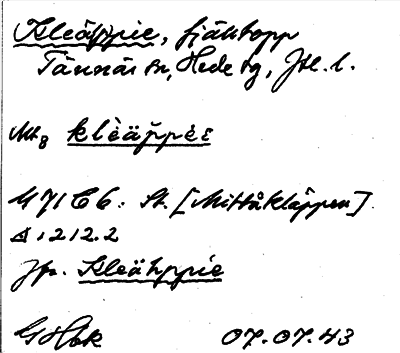 Kleähppie, fjälltopp
Tännäs sn, Hede tg, Jtl. l.
Utt. klèäp̆pèɛ
G 71 C 6: St. [Mittåkläppen]
Δ 1212.2
Jfr. Kleähppie
GHbk 07.07.43